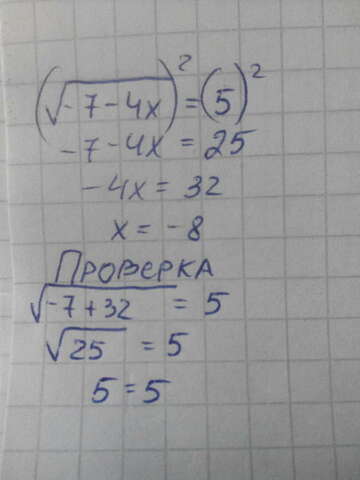 (√-7-4x)² = (5)²
-7-4x = 25
-4x = 32
x = -8
ПРОВЕРКА
√-7+32 = 5
√25 = 5
5 = 5